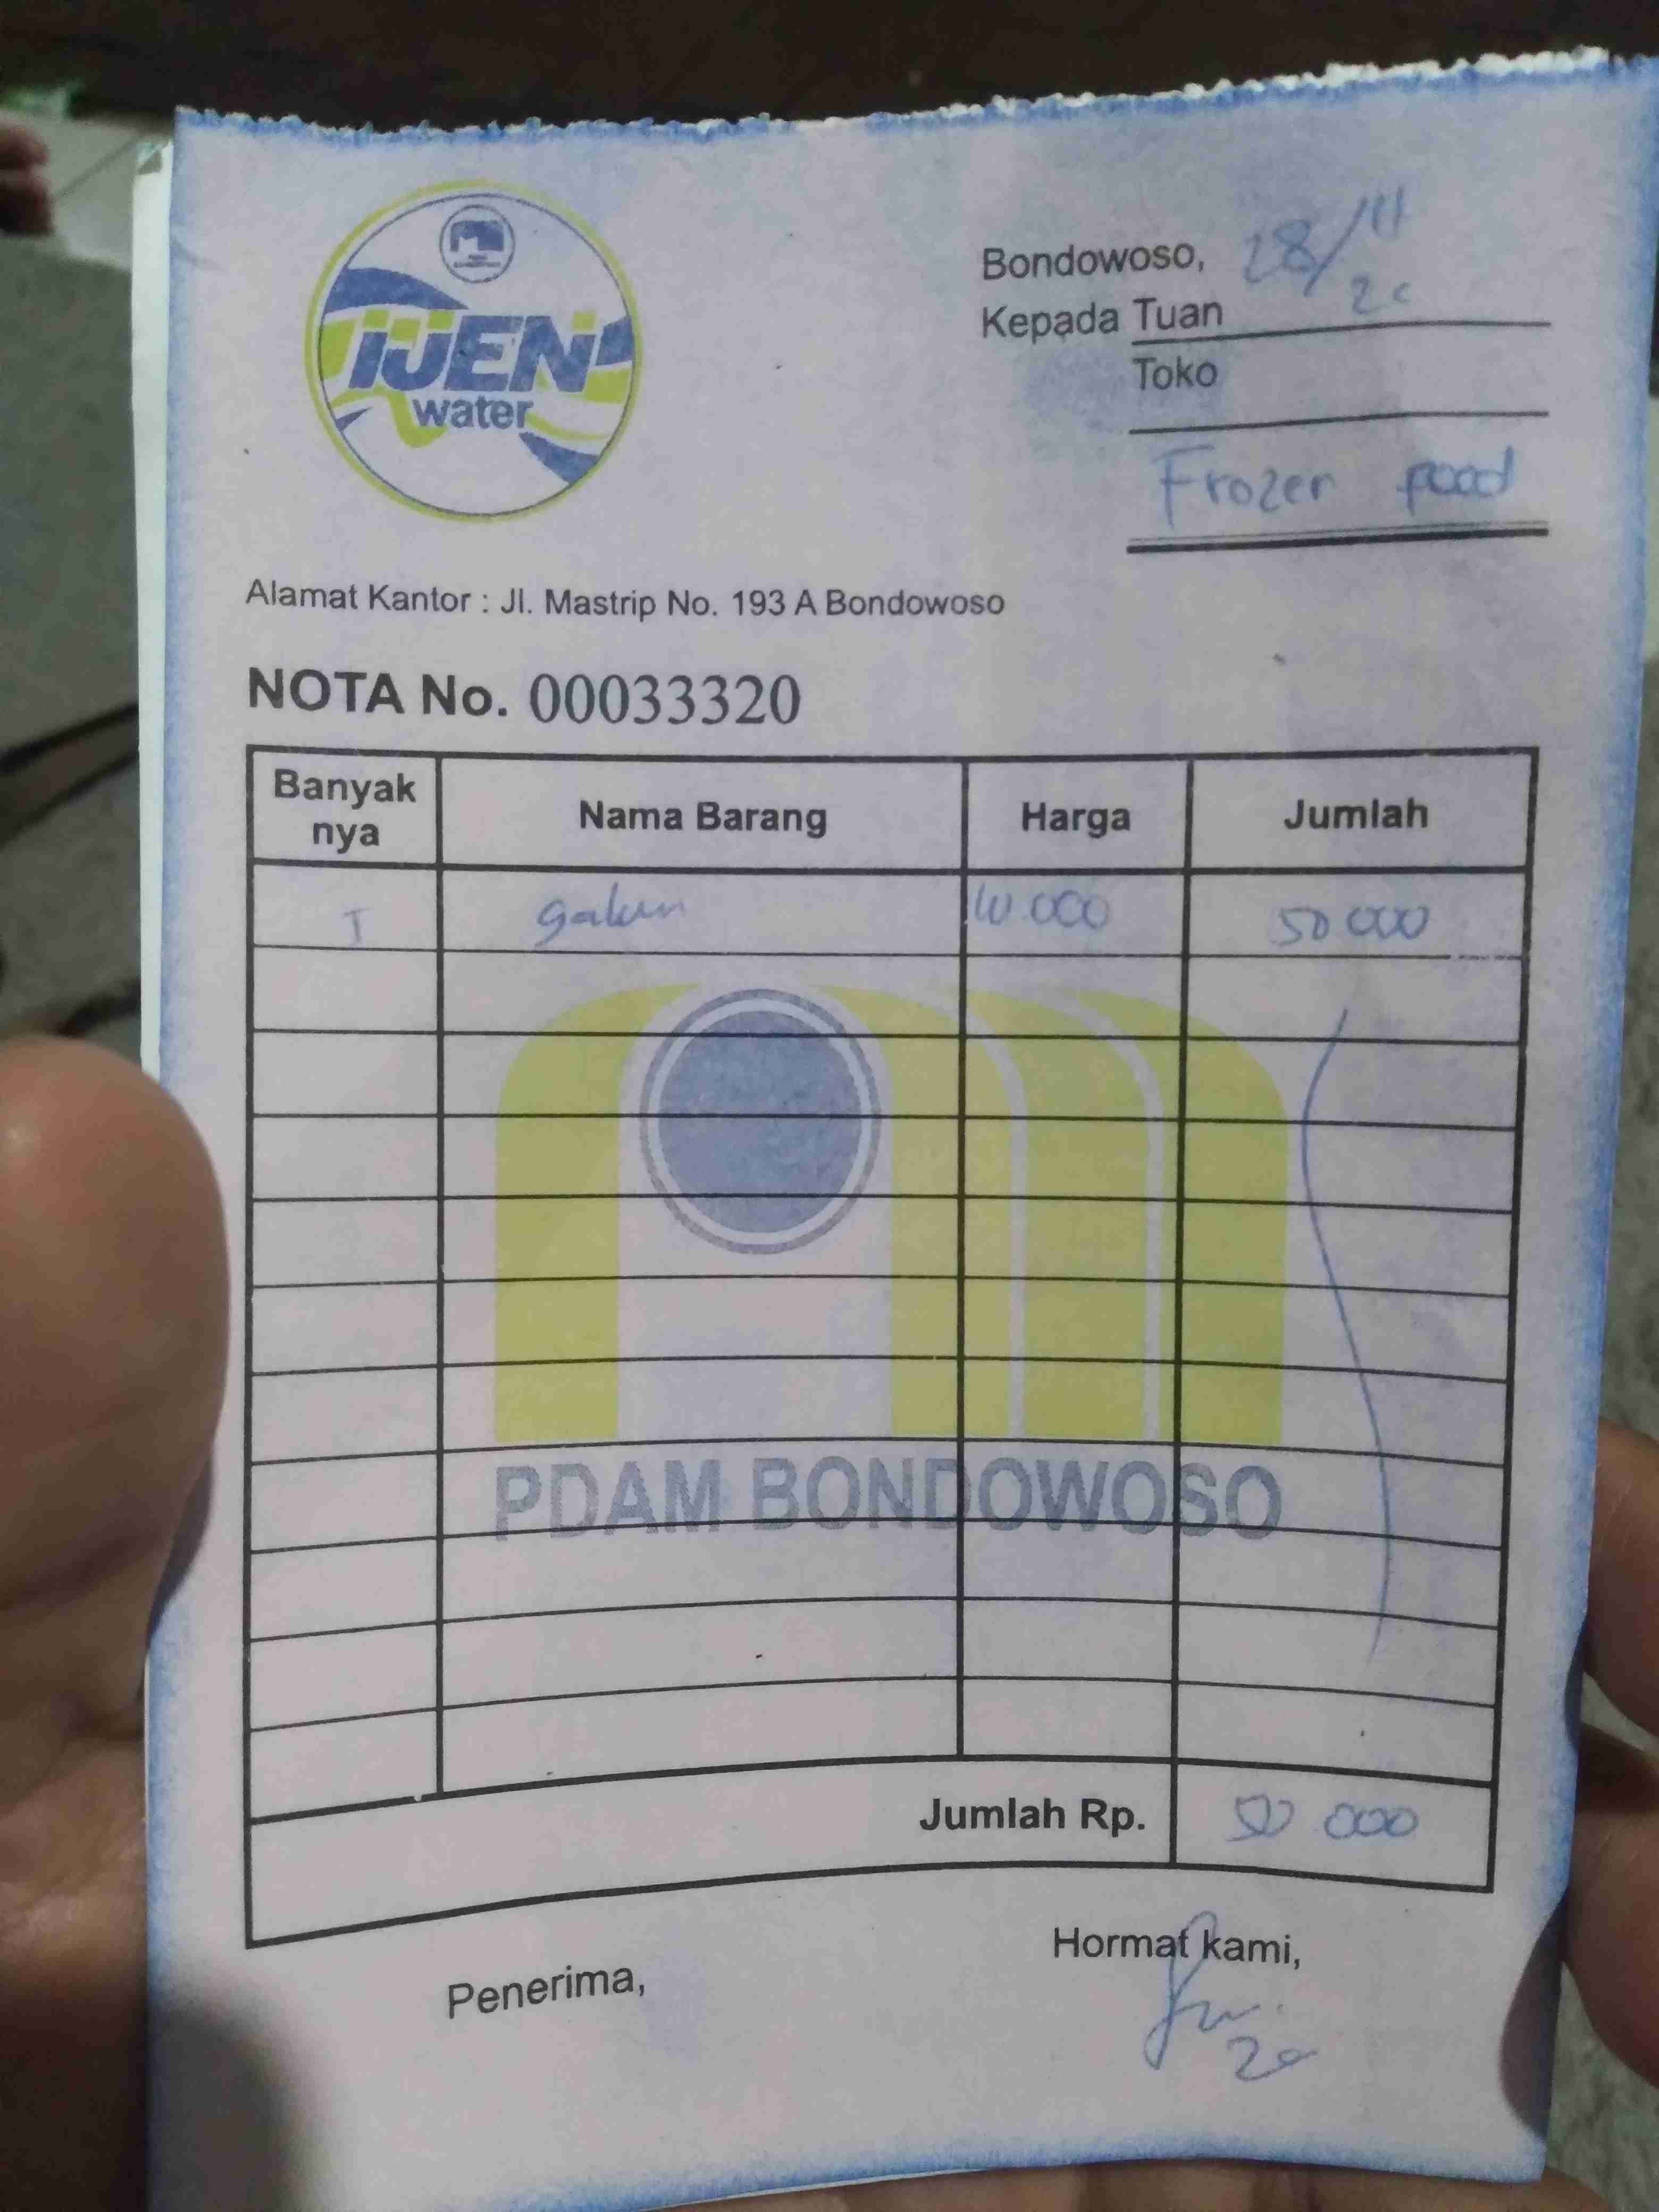 IJEN
water
Bondowoso, 28/11
20
Kepada Tuan
Toko
Frozen food
Alamat Kantor : Jl. Mastrip No. 193 A Bondowoso
NOTA No. 00033320
Banyak nya Nama Barang Harga Jumlah
galon 10.000 50 000
PDAM BONDOWOSO
Jumlah Rp. 50 000
Penerima, Hormat kami,